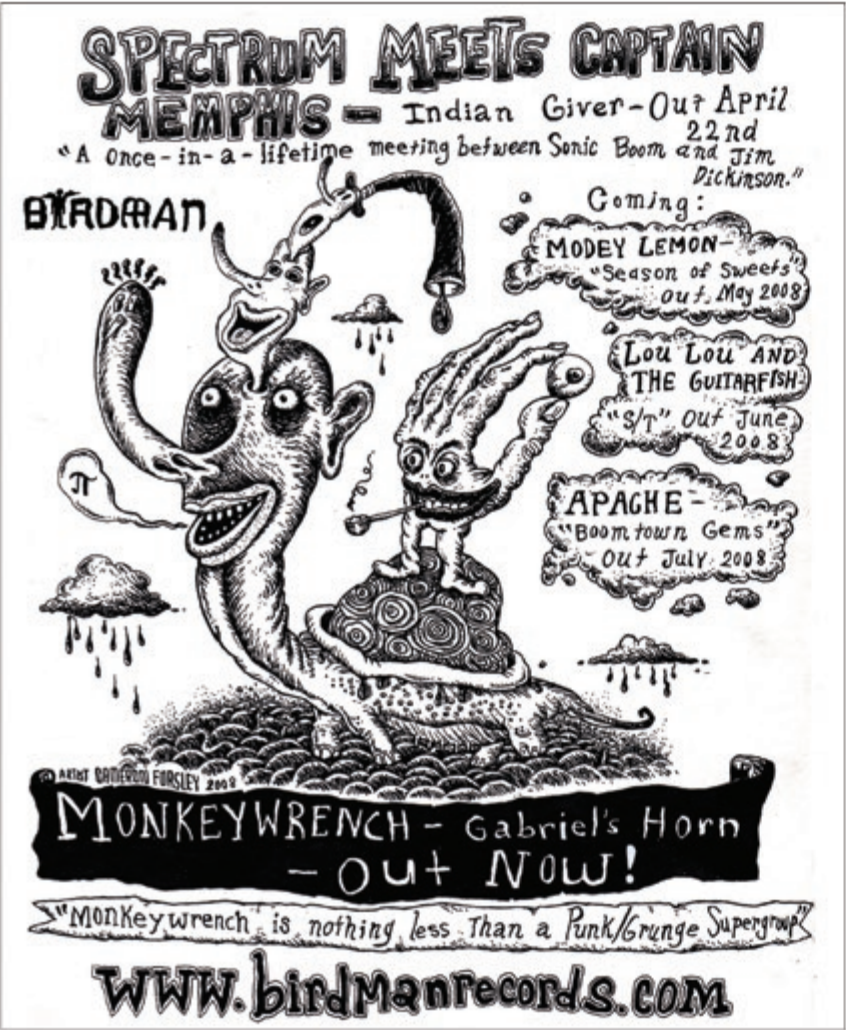 SPECTRUM MEETS CAPTAIN
MEMPHIS - Indian Giver - Out April
22nd
"A Once-in-a-lifetime meeting between Sonic Boom and Jim
Dickinson."
BIRDMAN
Coming:
MODEY LEMON-
"Season of Sweets"
Out May 2008
LOU LOU AND
THE GUITARFISH-
"S/T" Out June
2008
π
APACHE-
"Boomtown Gems"
Out July 2008
© ARTIST CAMERON FORSLEY 2008
MONKEYWRENCH - Gabriel's Horn
- Out NOW!
"Monkeywrench is nothing less Than a Punk/Grunge Supergroup"
www.birdmanrecords.com